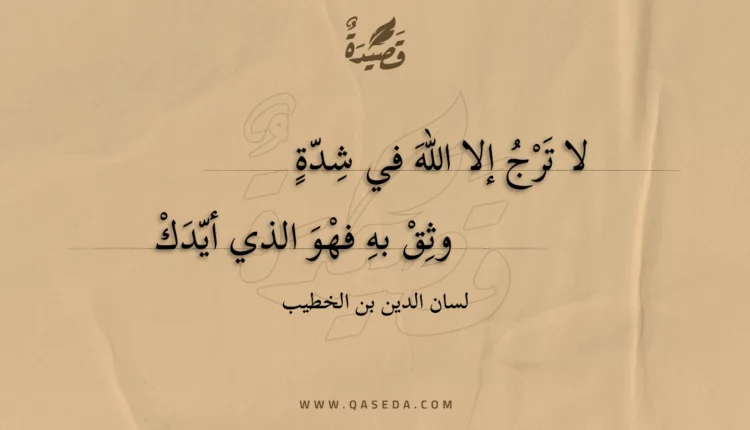 قَصِيدَةٌ
لا تَرْجُ إلا اللهَ في شِدّةٍ
وثِقْ بهِ فهْوَ الذي أيّدَكْ
لسان الدين بن الخطيب
WWW.QASEDA.COM